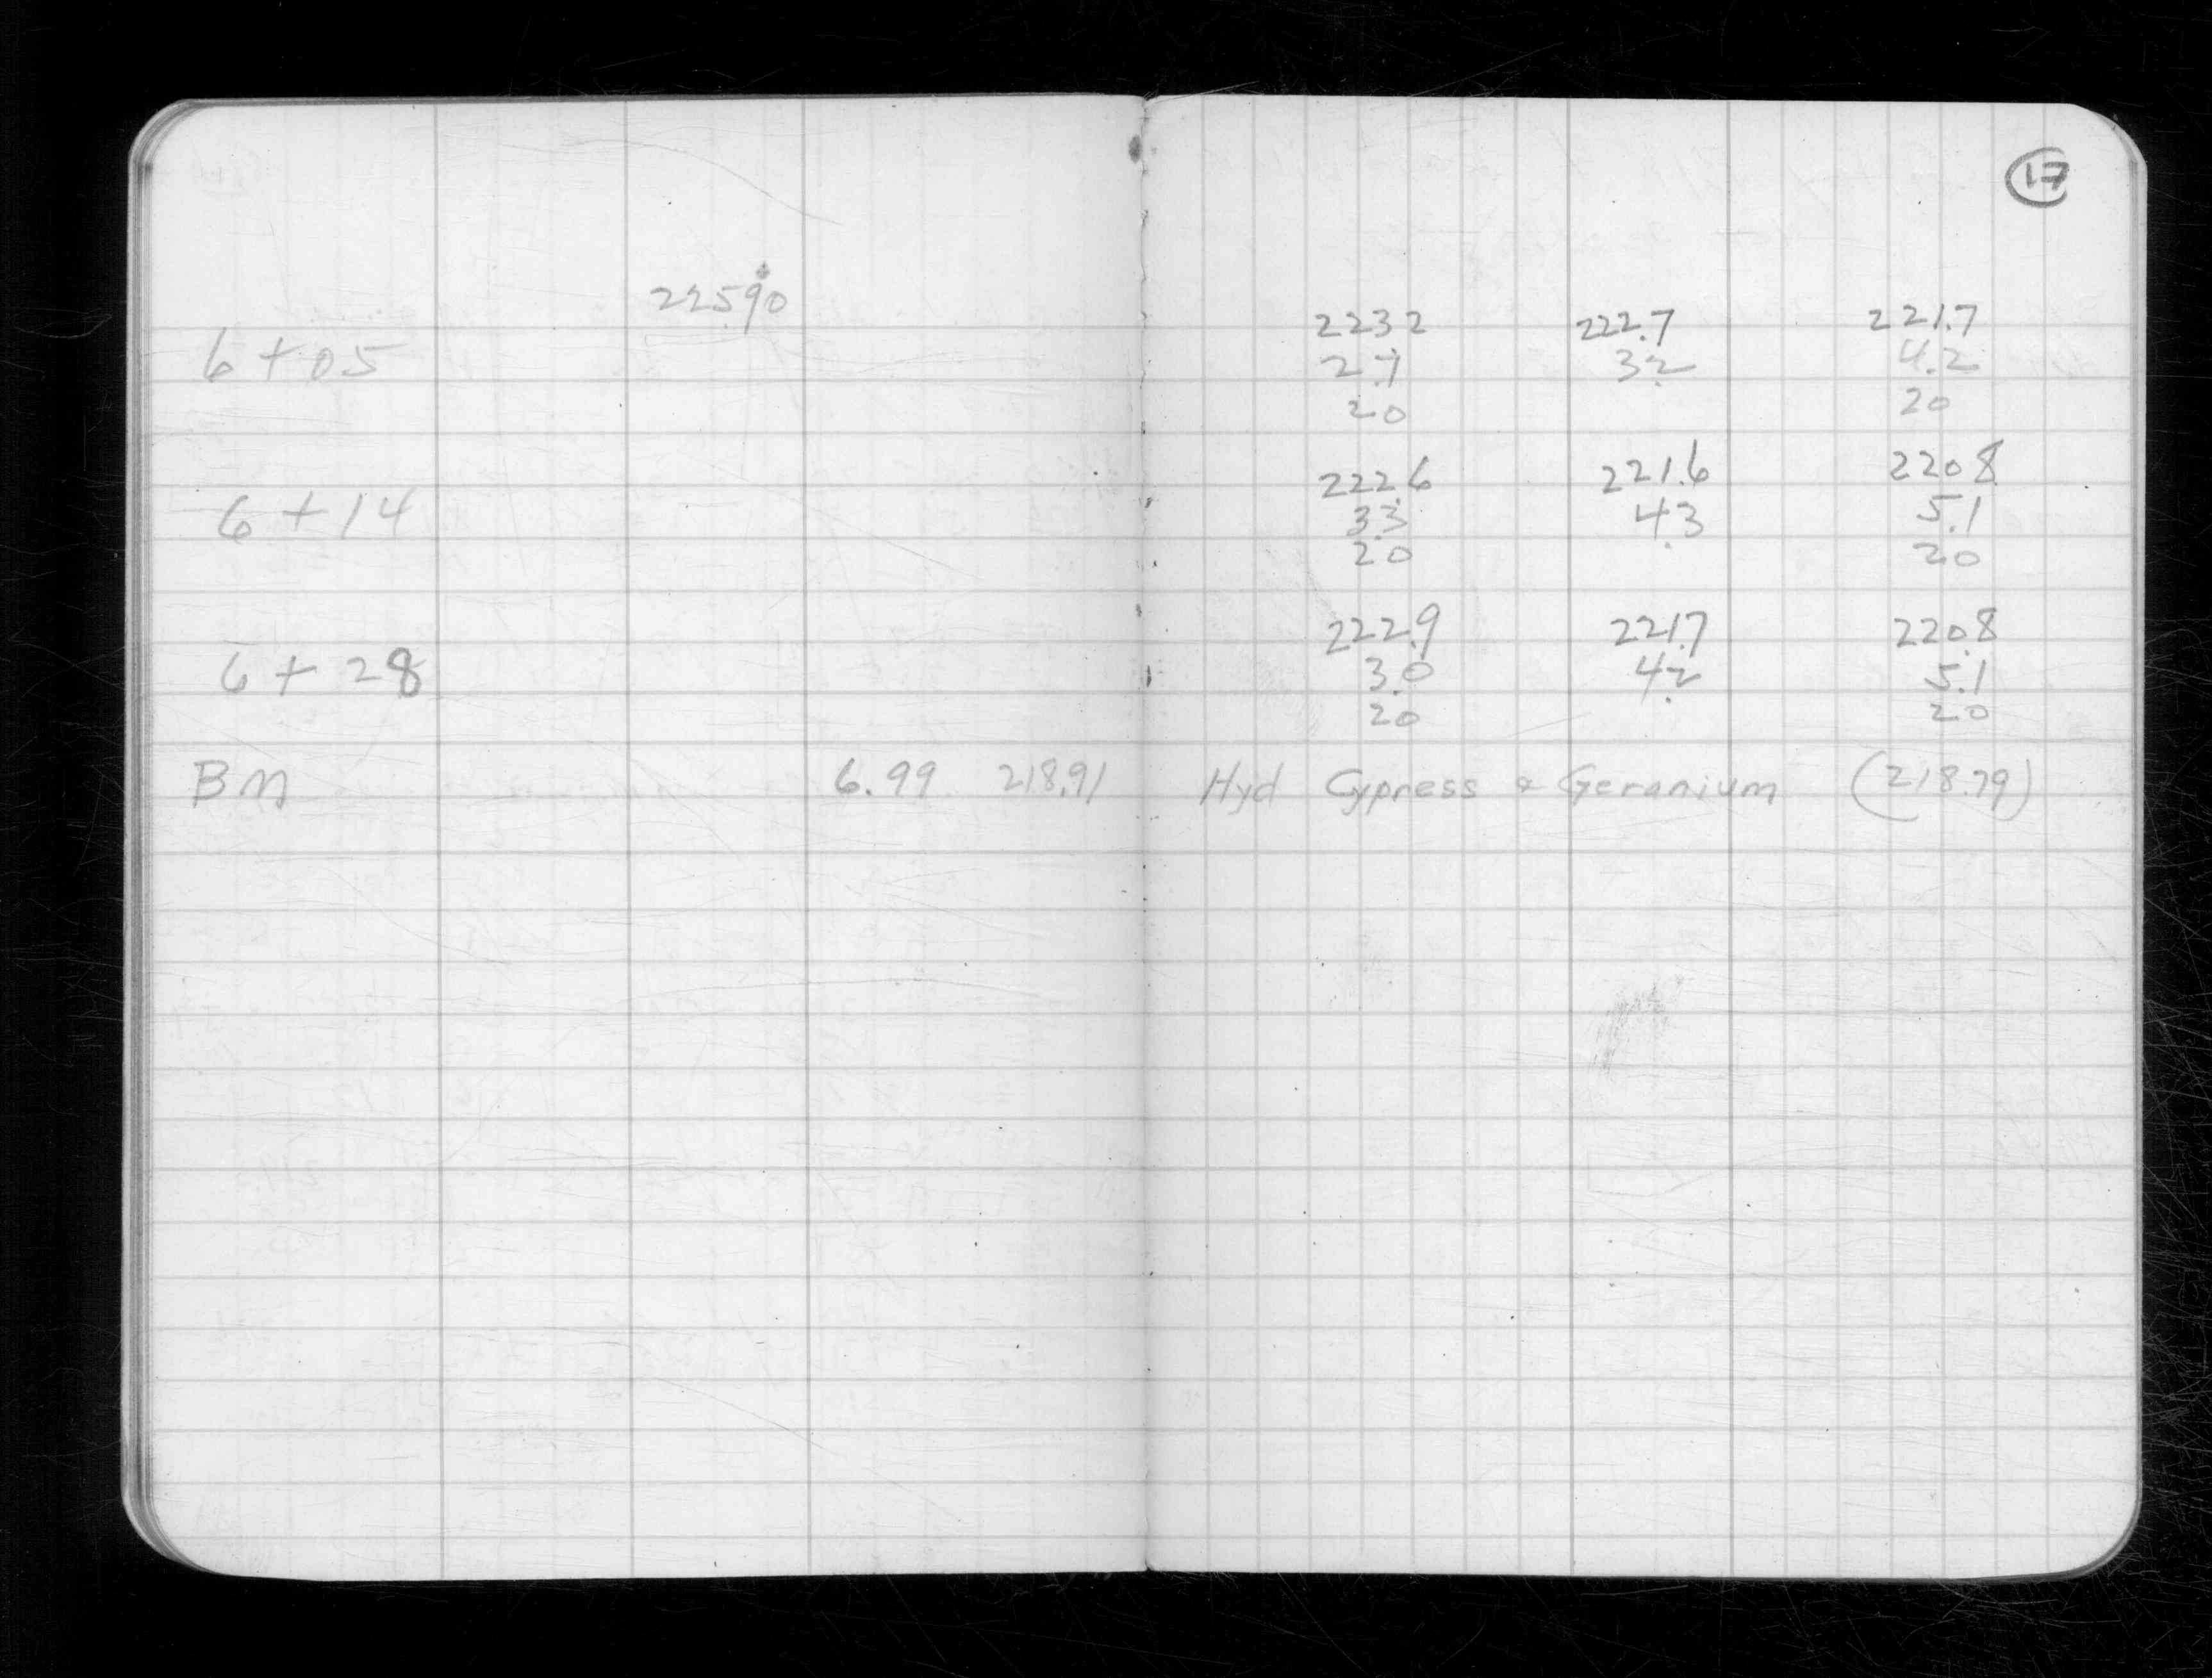 17
225.90
223.2 222.7 221.7
6+05 2.7 3.2 4.2
20 20
222.6 221.6 220.8
6+14 3.3 4.3 5.1
20 20
222.9 221.7 220.8
6+28 3.0 4.2 5.1
20 20
BM 6.99 218.91 Hyd Cypress & Geranium (218.79)